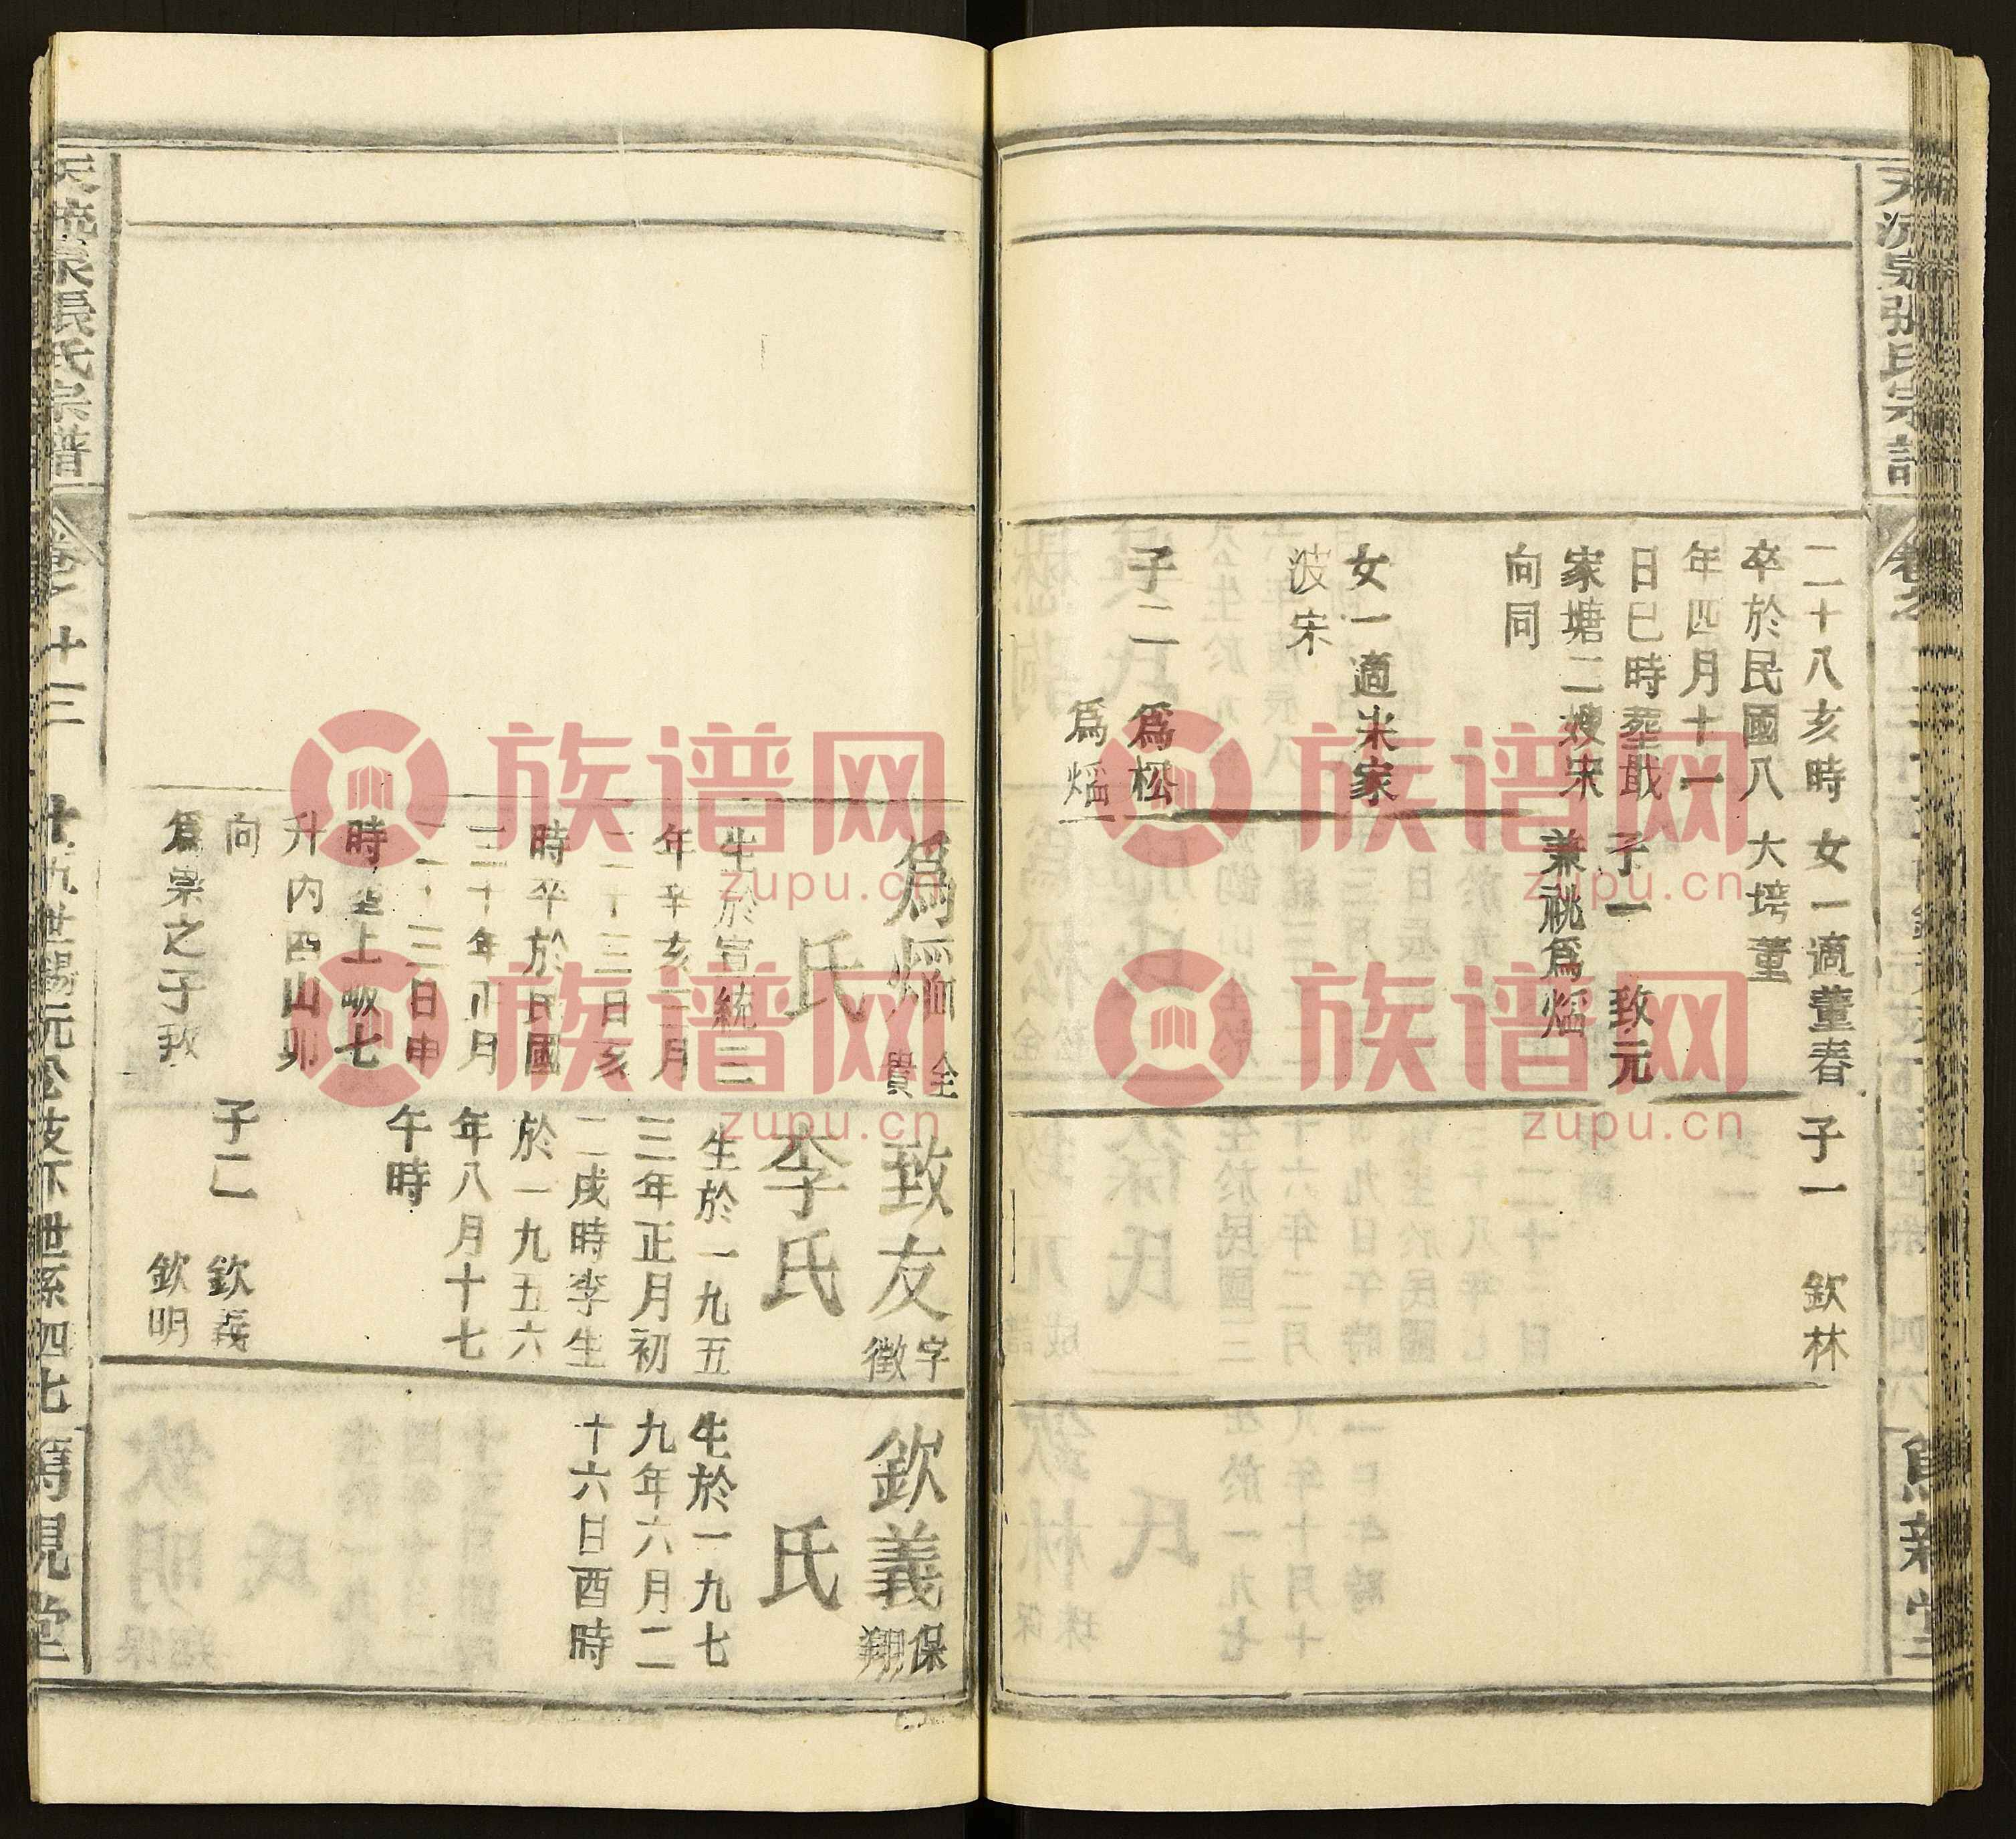 二十八亥時
卒於民國八
年四月十一
日巳時葬戢
家塘二嫂宋
向同
女一適米家
波宋
子二 爲松
爲熖
女一適董春
大塆董
子一 致元
兼祧爲熖
子一 欽林
爲熖
全
貴
氏
生於宣統三
年辛亥二月
二十三日亥
時卒於民國
三十年正月
二十三日申
時葬上坳七
升內酉山卯
向
爲眾之子致
致友
字
徵
李氏
生於一九五
三年正月初
二戌時李生
於一九五六
年八月十七
午時
子二 欽義
欽明
欽義
保
翔
氏
生於一九七
九年六月二
十六日酉時
張氏宗譜
十三
世系四七
堂
族谱网
zupu.cn
族谱网
zupu.cn
族谱网
zupu.cn
族谱网
zupu.cn